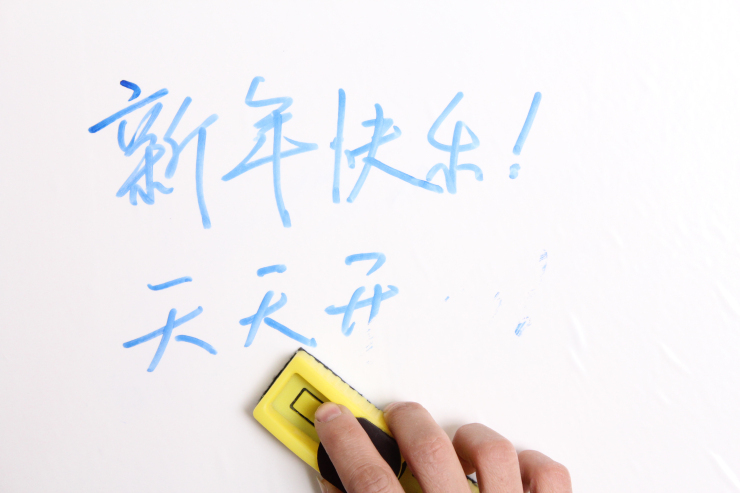 新年快乐!
天天开